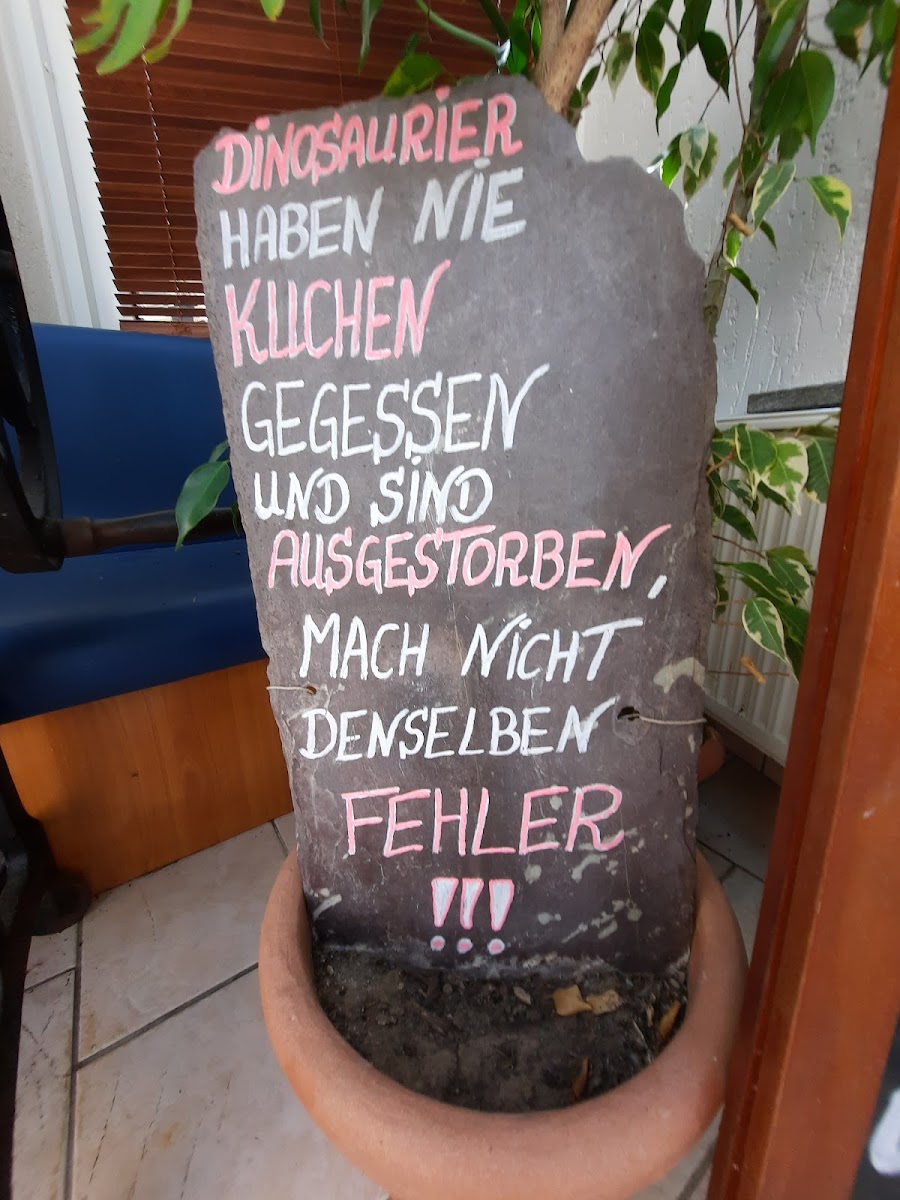 DINOSAURIER
HABEN NIE
KUCHEN
GEGESSEN
UND SIND
AUSGESTORBEN,
MACH NICHT
DENSELBEN
FEHLER
!!!